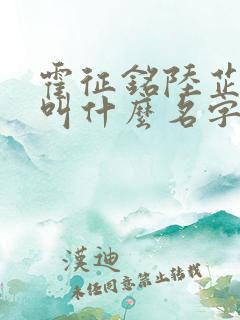 霍征銘陸芷
叫什麼名字
漢迪
未经同意禁止转载